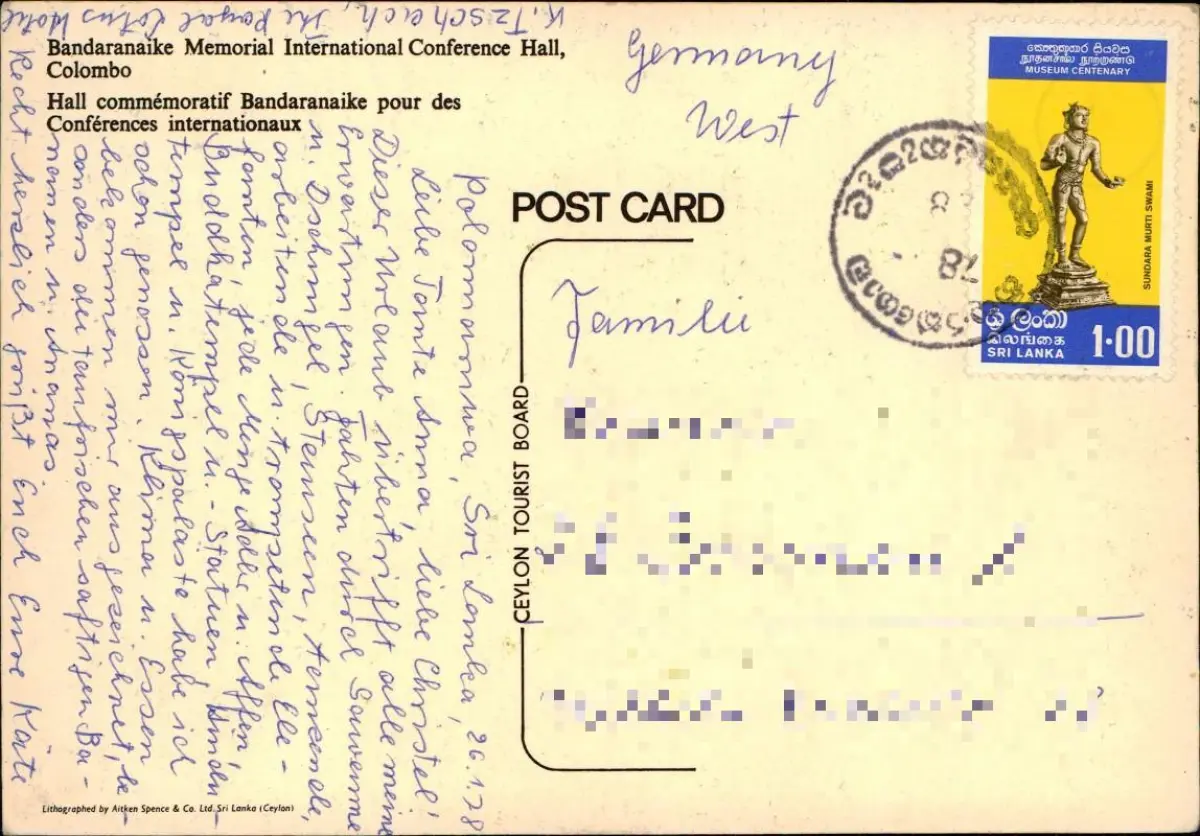 K. Tzschach, The Royal Lotus Hotel
Bandaranaike Memorial International Conference Hall,
Colombo
Hall commémoratif Bandaranaike pour des
Conférences internationaux
Polonnaruwa, Sri Lanka, 26.1.78
Liebe Tante Anna, liebe Christel!
Dieser Urlaub übertrifft alle meine
Erwartungen. Fahrten durch Savanne
u. Dschungel, Stauseen, tausende,
arbeitende u. transpetunde Ele-
fanten, jede Menge Adler u. Affen,
Buddhatempel u. -Statuen, hindu-
tempel u. Königspaläste habe ich
schon genossen. Klima u. Essen
bekommen mir ausgezeichnet, be-
sonders die taufrischen saftigen Ba-
nanen u. Ananas.
Recht herzlich grüßt Euch Eure Käte
Lithographed by Aitken Spence & Co. Ltd. Sri Lanka (Ceylon)
Germany
West
POST CARD
CEYLON TOURIST BOARD
Familie
කෞතුකාගාර සියවස
நூதனசாலை நூற்றாண்டு
MUSEUM CENTENARY
SUNDARA MURTI SWAMI
ශ්‍රී ලංකා
இலங்கை
SRI LANKA
1·00
78